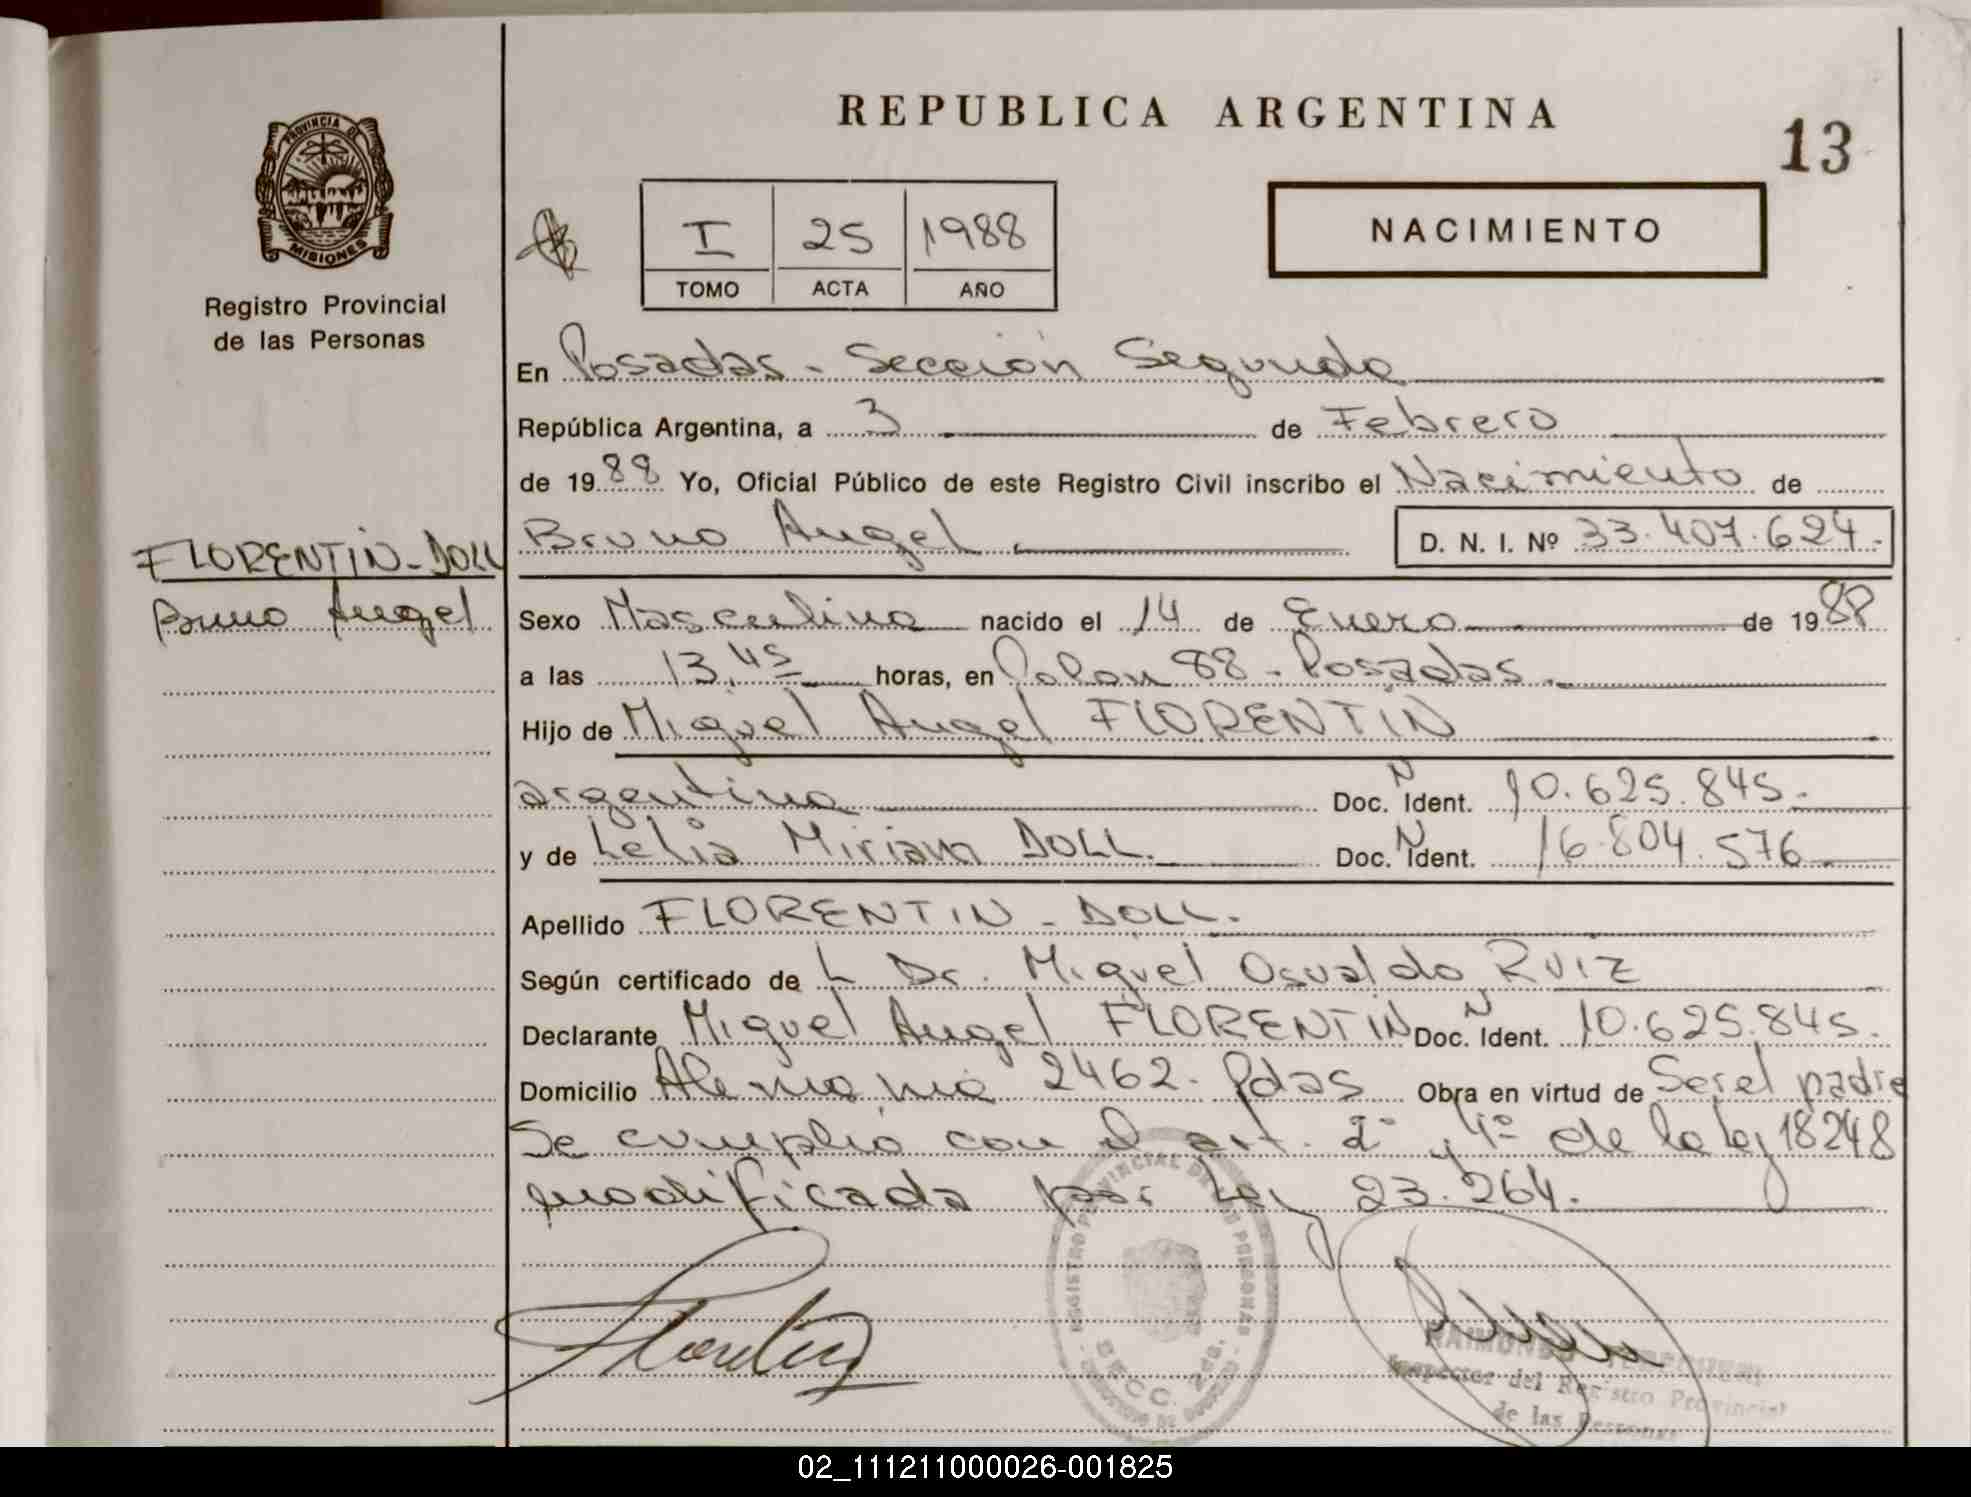 PROVINCIA DE
MISIONES
Registro Provincial
de las Personas
FLORENTIN-DOLL
Bruno Angel
REPUBLICA ARGENTINA
13
NACIMIENTO
I 25 1988
TOMO ACTA AÑO
En Posadas - Sección Segunda
República Argentina, a 3 de Febrero
de 1988 Yo, Oficial Público de este Registro Civil inscribo el Nacimiento de
Bruno Angel D. N. I. Nº 33.407.624.
Sexo Masculino nacido el 14 de Enero de 1988
a las 13,45 horas, en 88 - Posadas.
Hijo de Miguel Angel FLORENTIN
argentino Doc. N Ident. 10.625.845.
y de Lelia Miriam DOLL. Doc. N Ident. 16.804.576
Apellido FLORENTIN - DOLL.
Según certificado de L Dr. Miguel Osvaldo RUIZ
Declarante Miguel Angel FLORENTIN Doc. N Ident. 10.625.845.
Domicilio Alemania 2462. Pdas Obra en virtud de Ser el padre
Se cumplió con el art. 2º y 4º de la ley 18248
modificada por Ley 23.264.
REGISTRO PROVINCIAL DE LAS PERSONAS
SECC. 2da.
RAIMUNDO
Inspector del Registro Provincial
de las Personas
02_111211000026-001825